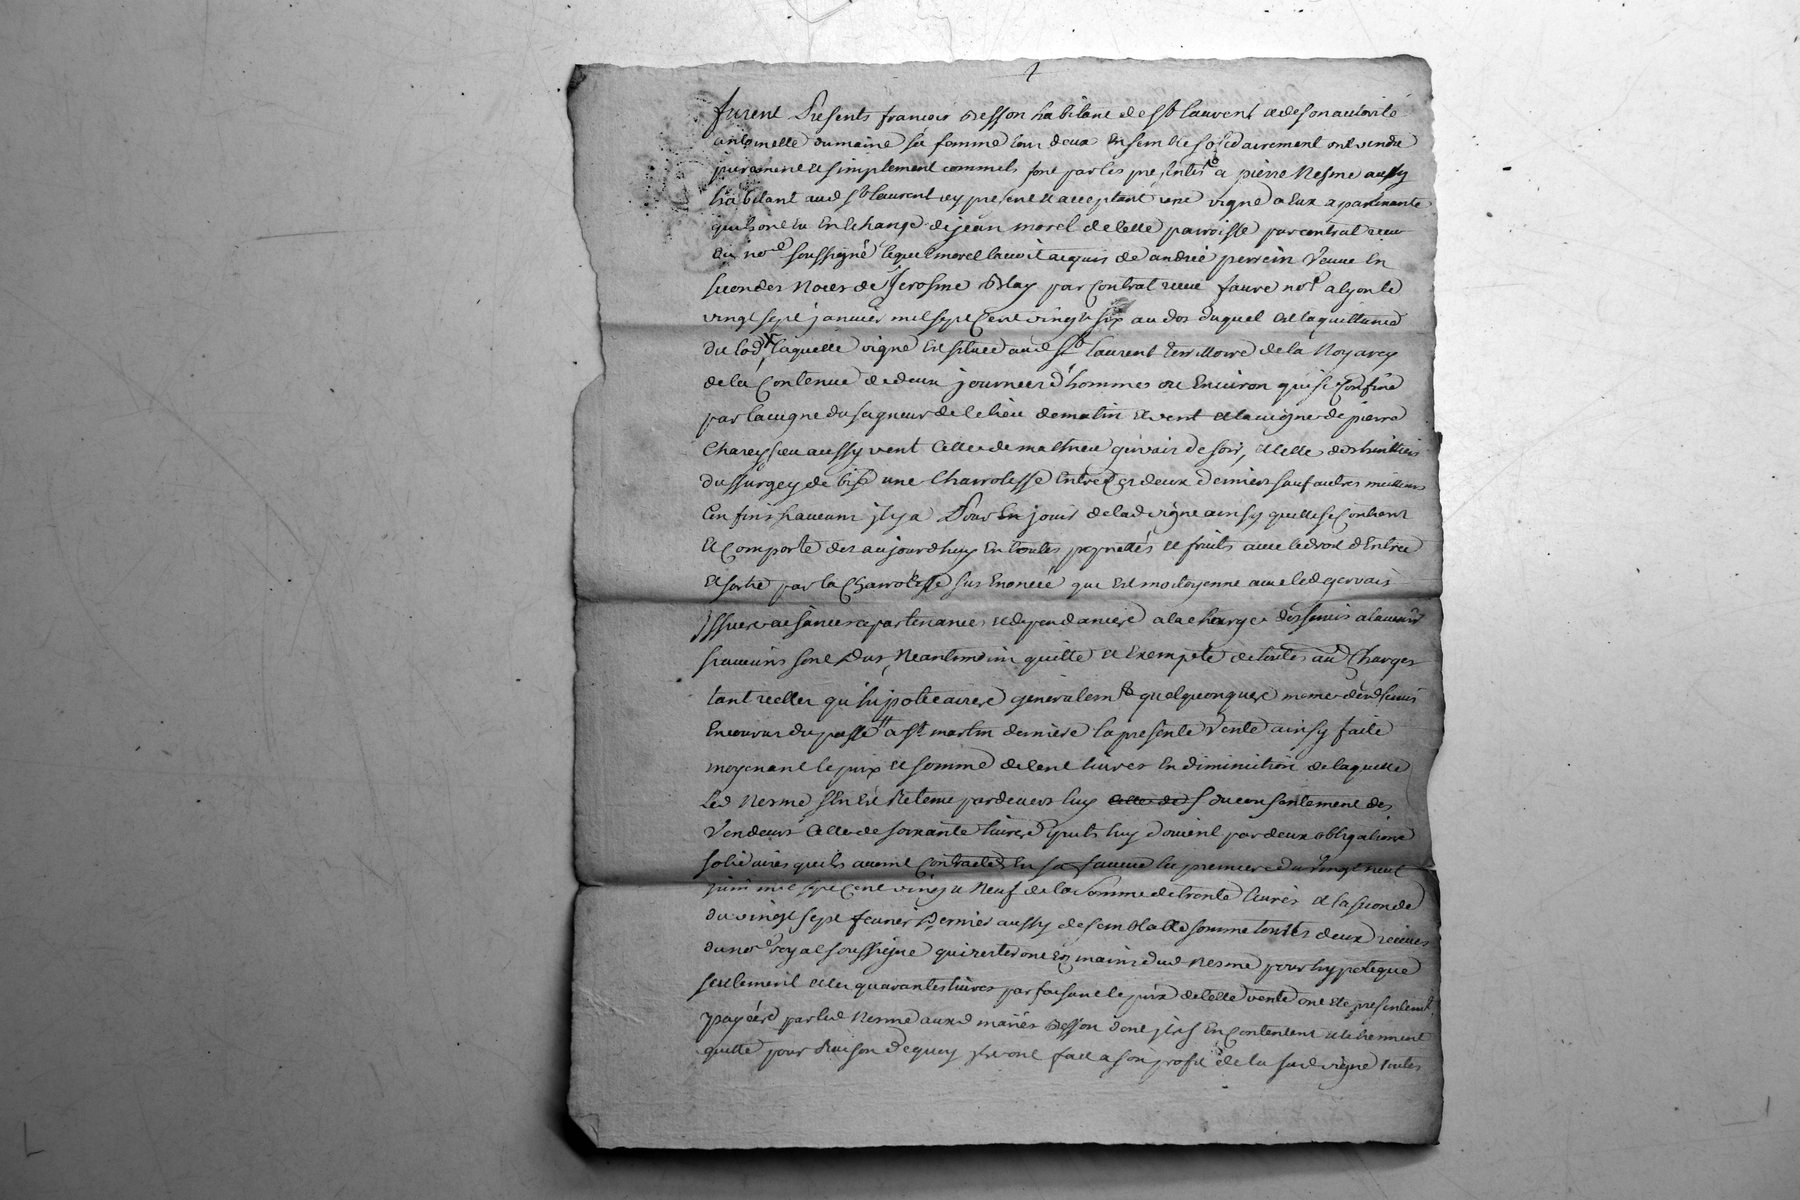 furent Presents francois Besson habitant de st laurent et de son autorité
antoinette dumaine sa femme tous deux Ensemble solidairement ont vendu
purement et simplement comme ils font par les presentes a pierre Nesme aussy
habitant aud st laurent icy present et acceptant une vigne a Eux apartenante
quils ont Eu En Echange de jean morel de Cette parroisse par contrat receu
du nore soussigné lequel morel lavoit acquis de andrée perrein Veuve En
secondes Noces de Jerosme Blay par Contrat receu faure nore a lyon le
vingt sept janvier mil sept Cent vingt six au dos duquel Est la quittance
du lod laquelle vigne Est située aud st laurent territoire de la Noyarey
de la Contenue de deux journées d'hommes ou Environ qui se Confine
par la vigne du seigneur de Ce lieu de matin et vent et la vigne de pierre
Charey aussy vent Celle de mathieu gervais de soir, et Celle des heritiers
du de bise une Charrotesse Entre Ces deux derniers sauf autres meilleurs
Confins si aucuns jl y a Pour En jouir de lad vigne ainsy quelle se Contient
et Comporte dez aujourdhuy En toutes proprietés et fruits avec le droit d'Entrée
et sortie par la Charrotesse sus Enoncée qui Est mitoyenne avec led gervais
jssues aisances apartenances et dependances a la charge des servis a lavenir
si aucuns sont Dus, Neantmoins quitte et Exempte de toutes au Charges
tant reelles qu'hipotecaires generalemt quelquonques meme desd servis
Encourus du passé a st martin derniere la presente Vente ainsy faite
moyenant le prix et somme de Cent livres En diminution de laquelle
Led Nesme s'En Est Retenu pardevers luy du consentement des
Vendeurs Celle de soixante livres quils luy doivent par deux obligations
solidaires quils avoient Contractées En sa faveur la premiere du Vingt neuf
juin mil sept Cent vingt Neuf de la Somme de trente livres et la seconde
du vingt sept fevrier Dernier aussy de semblable somme toutes deux receues
du nore royal soussigné qui resteront Ez mains dud Nesme pour hypoteque
seulement et les quarantes livres parfaisant le prix de Cette vente ont Eté presentemt
payées par led Nesme auxd mariés Besson dont jls s En Contentent et le tiennent
quitte pour Raison Dequoy jls ont fait a son profit de la susd vigne toutes